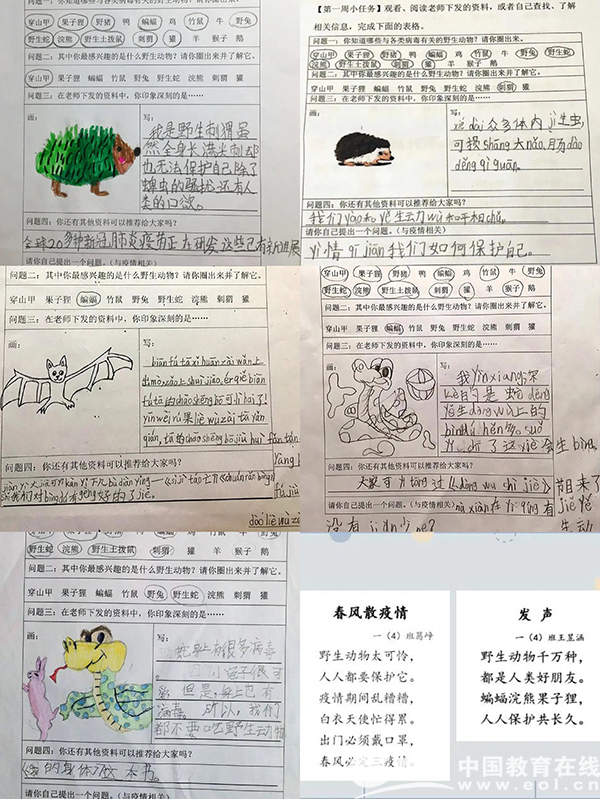 问题一：你知道哪些与各类病毒有关的野生动物？请你圈出来。
穿山甲 果子狸 野猪 鸭 蝙蝠 鸡 竹鼠 牛 野兔
野生蛇 浣熊 野生土拨鼠 刺猬 獾 羊 猴子 鹅
问题二：其中你最感兴趣的是什么野生动物？请你圈出来并了解它。
穿山甲 果子狸 蝙蝠 竹鼠 野兔 野生蛇 浣熊 刺猬 獾
问题三：在老师下发的资料中，你印象深刻的是……
画：
写：
我是野生刺猬虽
然全身长满尖刺却
也无法保护自己除了
蜱虫的骚扰还有人
类的口欲。
问题四：你还有其他资料可以推荐给大家吗？
全球20多种新冠肺炎疫苗正在研发 这些已有新进展
请你自己提出一个问题。（与疫情相关）
【第一周小任务】观看、阅读老师下发的资料，或者自己查找、了解
相关信息，完成下面的表格。
问题一：你知道哪些与各类病毒有关的野生动物？请你圈出来。
穿山甲 果子狸 野猪 鸭 蝙蝠 鸡 竹鼠 牛 野兔
野生蛇 浣熊 野生土拨鼠 刺猬 獾 羊 猴子 鹅
问题二：其中你最感兴趣的是什么野生动物？请你圈出来并了解它。
穿山甲 果子狸 蝙蝠 竹鼠 野兔 野生蛇 浣熊 刺猬 獾
问题三：在老师下发的资料中，你印象深刻的是……
画：
写：
众多体内jì生虫
可损shāng大nǎo，肠dào
děng qì guān。
问题四：你还有其他资料可以推荐给大家吗？
我们yào和yě生动wù和平相chǔ。
请你自己提出一个问题。（与疫情相关）
yì情qī jiān我们如何保护自己。
问题二：其中你最感兴趣的是什么野生动物？请你圈出来并了解它。
穿山甲 果子狸 蝙蝠 竹鼠 野兔 野生蛇 浣熊 刺猬 獾
问题三：在老师下发的资料中，你印象深刻的是……
画：
写：
biān fú tā xǐ huān zài wǎn上
出mò，zǎo上shuì jiào，ér qiě biān
fú tā的chāo shēng bō可lì hai了！
yīn wèi rú果liè wù zài tā yǎn
qián，tā的chāo shēng bō jiù huì
问题四：你还有其他资料可以推荐给大家吗？
请你自己提出一个问题。（与疫情相关）
野生蛇 浣熊 野生土拨鼠 刺猬 獾 羊 猴子 鹅
问题二：其中你最感兴趣的是什么野生动物？请你圈出来并了解它。
穿山甲 果子狸 蝙蝠 竹鼠 野兔 野生蛇 浣熊 刺猬 獾
问题三：在老师下发的资料中，你印象深刻的是……
画：
写：
我yìn xiàng深
kè的是
问题四：你还有其他资料可以推荐给大家吗？
大家可
请你自己提出一个问题。（与疫情相关）
野生蛇 浣熊 野生土拨鼠 刺猬 獾 羊 猴子 鹅
问题二：其中你最感兴趣的是什么野生动物？请你圈出来并了解它。
穿山甲 果子狸 蝙蝠 竹鼠 野兔 野生蛇 浣熊 刺猬 獾
问题三：在老师下发的资料中，你印象深刻的是……
画：
写：
蛇身上有很多病毒
小兔子很可
爱 但是，身上也有
病毒。所以，我们
都不要吃野生动物
问题四：你还有其他资料可以推荐给大家吗？
请你自己提出一个问题。（与疫情相关）
春风散疫情
一（4）班葛峥
野生动物太可怜，
人人都要保护它。
疫情期间乱糟糟，
白衣天使忙得累。
出门必须戴口罩，
春风必定三疫情。
发声
一（4）班王星涵
野生动物千万种，
都是人类好朋友。
蝙蝠浣熊果子狸，
人人保护共长久。
中国教育在线
www.eol.cn